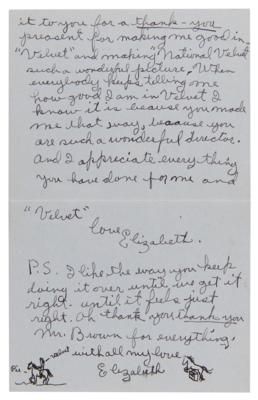 it to you for a thank-you
present for making me good in
"Velvet" and making "National Velvet"
such a wonderful picture. When
everybody keeps telling me
how good I am in Velvet I
know it is because you made
me that way, because you
are such a wonderful director.
And I appreciate everything
you have done for me and
"Velvet"
Love
Elizabeth.
P.S. I like the way you keep
doing it over until we get it
right. until it feels just
right. Oh thank you thank you
Mr. Brown for everything,
with all my love,
Elizabeth
Pie
velvet